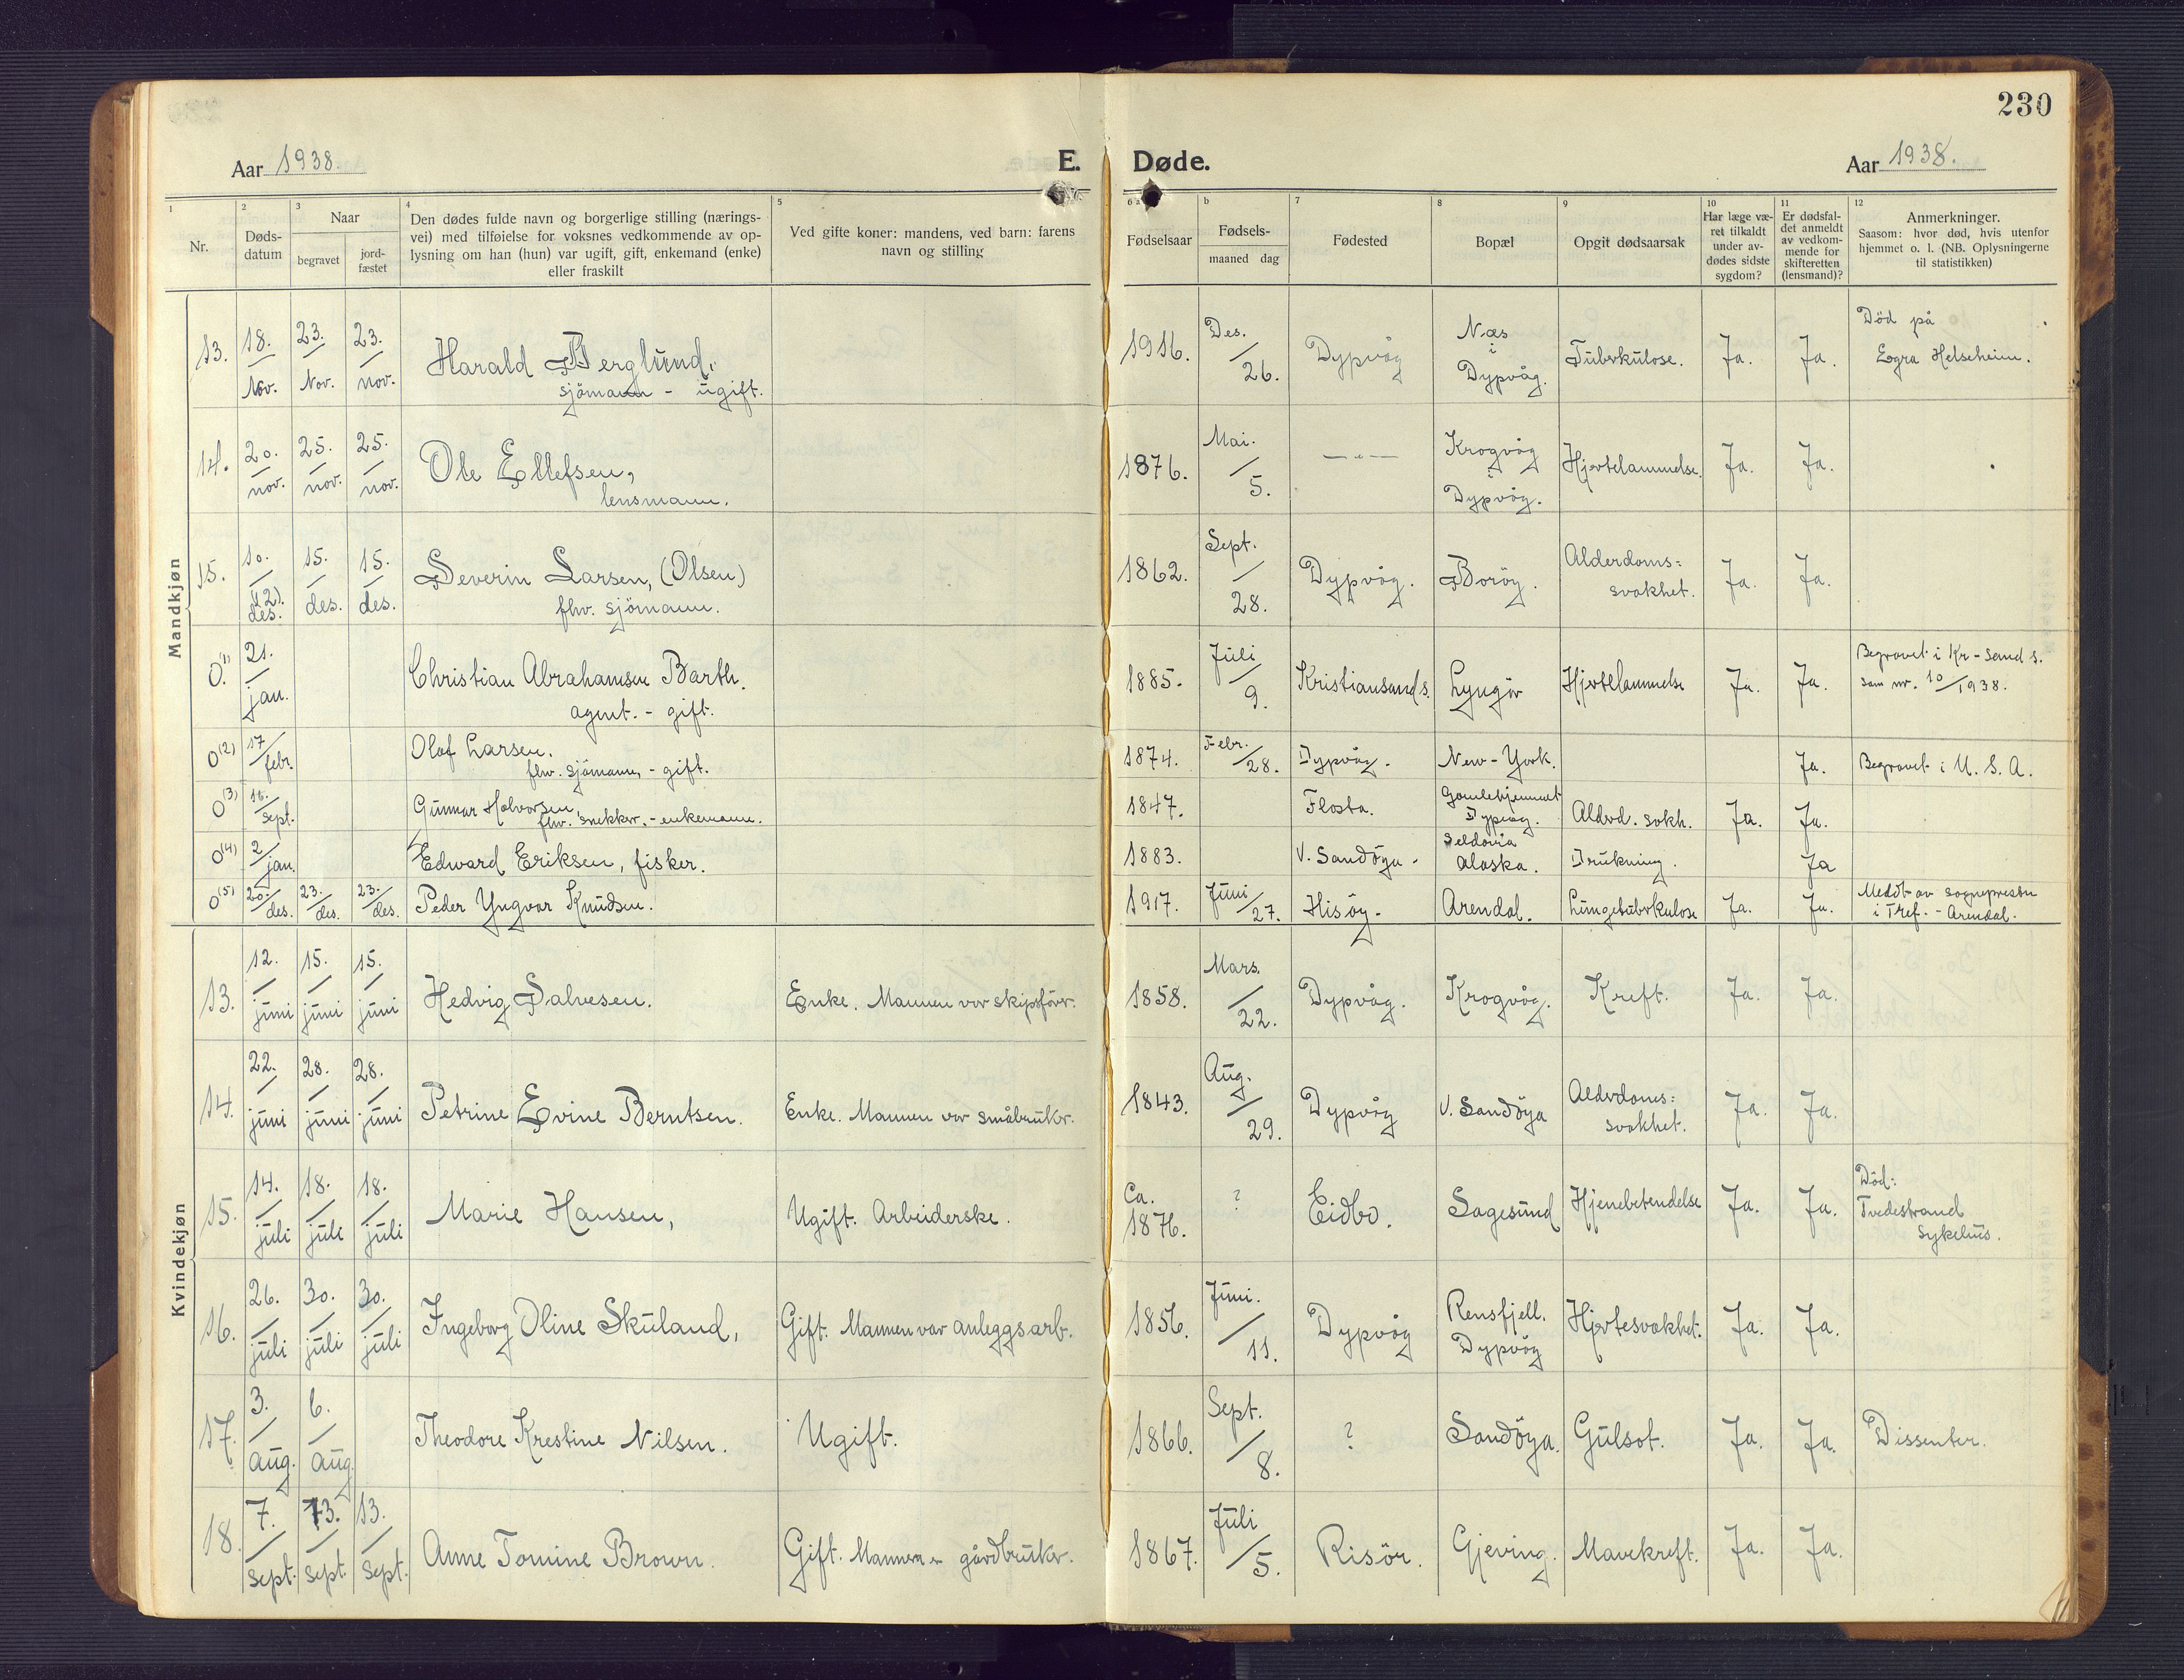 230
Aar 1938.
E. Døde.
Aar 1938.
1 Nr.
2 Døds-
datum
3 Naar
begravet
jord-
fæstet
4 Den dødes fulde navn og borgerlige stilling (nærings-
vei) med tilføielse for voksnes vedkommende av op-
lysning om han (hun) var ugift, gift, enkemand (enke)
eller fraskilt
5 Ved gifte koner: mandens, ved barn: farens
navn og stilling
6 a Fødselsaar
b Fødsels-
maaned dag
7 Fødested
8 Bopæl
9 Opgit dødsaarsak
10 Har læge væ-
ret tilkaldt
under av-
dødes sidste
sygdom?
11 Er dødsfal-
det anmeldt
av vedkom-
mende for
skifteretten
(lensmand)?
12 Anmerkninger.
Saasom: hvor død, hvis utenfor
hjemmet o. l. (NB. Oplysningerne
til statistikken)
Mandkjøn
13. 18./Nov. 23./Nov. 23./nov. Harald Berglund,
sjömann - ugift.
1916. Des./26. Dypvåg Næs
i
Dypvåg. Tuberkulose. Ja. Ja. Död på
Egra Helseheim.
14. 20./nov. 25./nov. 25./nov. Ole Ellefsen,
lensmann.
1876. Mai./5. —„— Krogvåg
i
Dypvåg. Hjertelammelse. Ja. Ja.
15. 10./(12). des. 15./des. 15./des. Severin Larsen, (Olsen)
fhv. sjömann.
1862. Sept./28. Dypvåg. Boröy. Alderdoms=
svakhet. Ja. Ja.
0.1) 21./jan. Christian Abrahamsen Barth.
agent. - gift.
1885. Juli/9. Kristiansand s. Lyngör Hjertelammelse Ja. Ja. Begravet i Kr-sand s.
som nr. 10/1938.
0(2) 17/febr. Olaf Larsen.
fhv. sjömann, - gift.
1874. Febr./28. Dypvåg. New-York. Ja. Begravet i U.S.A.
0(3) 16./sept. Gunnar Halvorsen,
fhv. snekker, - enkemann.
1847. Flosta. Gamlehjemmet
Dypvåg. Alderd. svkh. Ja. Ja.
0(4) 2/jan. Edward Eriksen, fisker.
1883. V. Sandöya. Seldovia
Alaska. Drukning. Ja
0(5) 20./des. 23./des. 23./des. Peder Yngvar Knudsen.
1917. Juni/27. Hisöy. Arendal. Lungetuberkulose Ja. Ja. Meddt av sognepresten
i Tref. - Arendal.
Kvindekjøn
13. 12./juni 15./juni 15./juni Hedvig Salvesen. Enke. Mannen var skipsförer.
1858. Mars./22. Dypvåg. Krogvåg. Kreft. Ja. Ja.
14. 22./juni 28./juni 28./juni Petrine Evine Berntsen. Enke. Mannen var småbruker.
1843. Aug./29. Dypvåg V. Sandöya Alderdoms=
svakhet. Ja. Ja.
15. 14./juli 18./juli 18./juli Marie Hansen, Ugift. Arbeiderske.
Ca.
1876. ? Eidbo. Sagesund Hjenebetendelse Ja. Ja. Död:
Tvedestrand
Sykehus.
16. 26./juli 30./juli 30./juli Ingeborg Oline Skuland, Gift. Mannen var anleggsarb.
1856. Juni./11. Dypvåg Rensfjell.
Dypvåg Hjertesvakhet. Ja. Ja.
17. 3./aug. 6./aug. Theodore Krestine Nilsen. Ugift.
1866. Sept./8. ? Sandöya. Gulsot. Ja. Ja. Dissenter.
18. 7./sept. 13./sept. 13./sept. Anne Tomine Brown. Gift. Mannen er gårdbruker.
1867. Juli/5. Risör. Gjeving. Mavekreft. Ja. Ja.